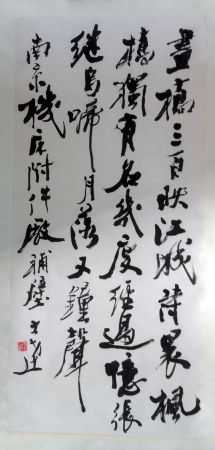 畫橋三百映江城詩裏楓
橋獨有名幾度經過憶張
继烏啼月落又鐘聲
南京機床附件廠補壁